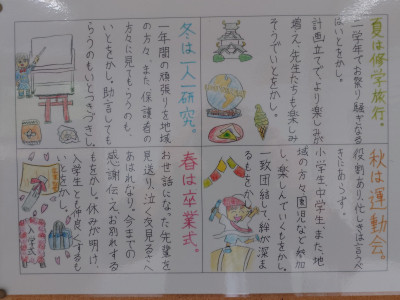 夏は修学旅行。
一学年でお祭り騒ぎなる
はいとをかし。
計画立てて、より楽しみが
増え、先生たちも楽しみ
そうでいとをかし。
秋は運動会。
役割あり、忙しきは言うべ
きにあらず。
小学生、中学生、また、地
域の方々、園児など参加
し、楽しんでいくもをかし。
一致団結して、絆が深ま
るもをかし。
冬は一人一研究。
一年間の頑張りを地域
の方々、また、保護者の
方々に見てもらうのも、
いとをかし。助言しても
らうのもいとつきづきし。
春は卒業式。
お世話になった先輩を
見送り、泣く姿見るさへ
あはれなり。今までの
感謝伝え、お別れする
もをかし。休みが明け、
入学生とも仲良くするも
いとをかし。
入学式